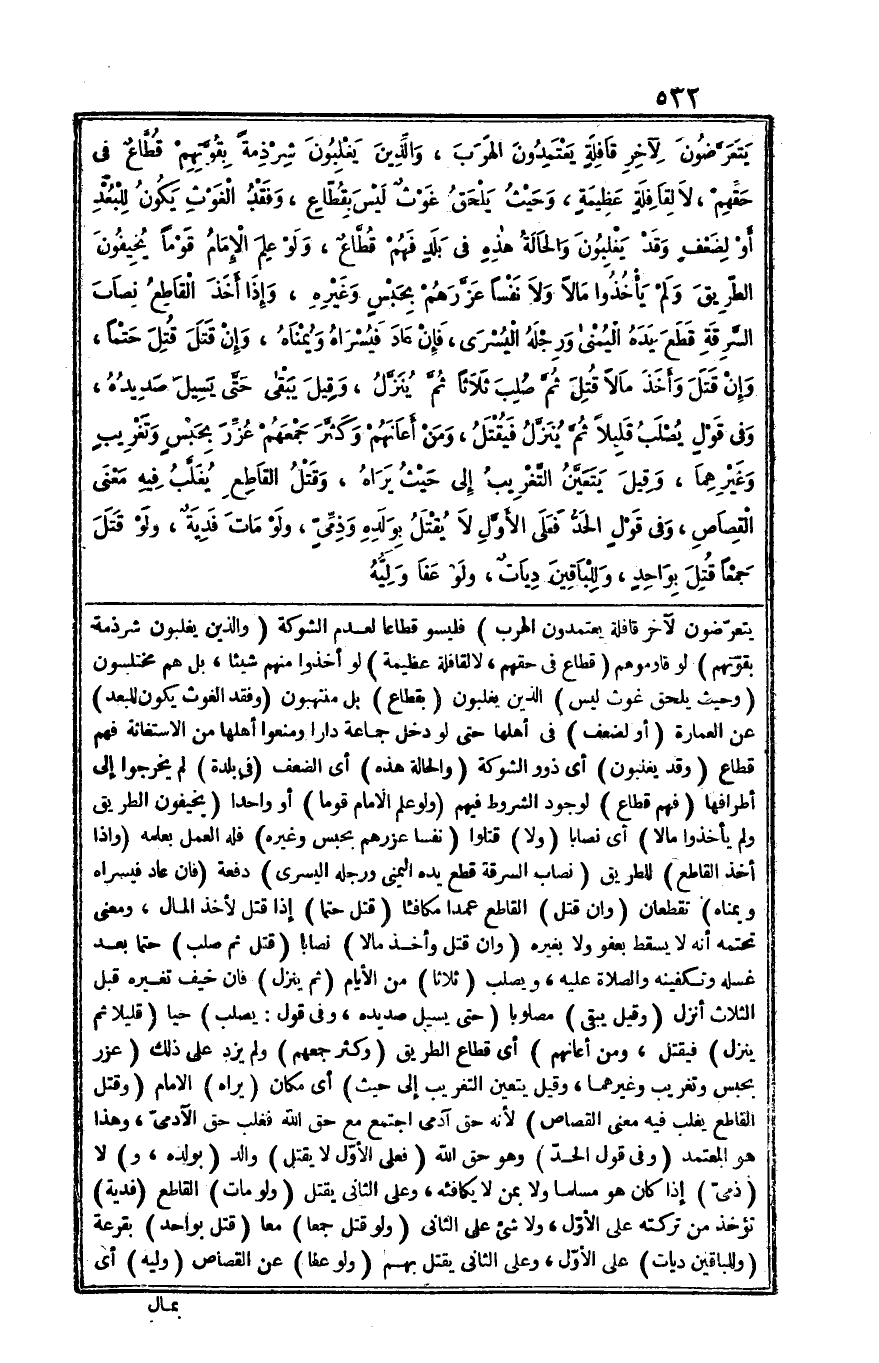 ٥٣٢
يَتَعَرَّضُونَ لِآخِرِ قَافِلَةٍ يَعْتَمِدُونَ الهَرَبَ ، وَالَّذِينَ يَغْلِبُونَ شِرْذِمَةً بِقُوَّتِهِمْ قُطَّاعٌ فى
حَقِّهِمْ ، لَا لِقَافِلَةٍ عَظِيمَةٍ ، وَحَيْثُ يَلْحَقُ غَوْثٌ لَيْسَ بِقُطَّاعٍ ، وَفَقْدُ الْغَوْثِ يَكُونُ لِلْبُعْدِ
أَوْ لِضَعْفٍ وَقَدْ يَغْلِبُونَ وَالحَالَةُ هٰذِهِ فى بَلَدٍ فَهُمْ قُطَّاعٌ ، وَلَوْ عَلِمَ الْإِمَامُ قَوْماً يُخِيفُونَ
الطَّرِيقَ وَلَمْ يَأْخُذُوا مَالاً وَلاَ نَفْساً عَزَّرَهُمْ بِحَبْسٍ وَغَيْرِهِ ، وَإِذَا أَخَذَ الْقَاطِعُ نِصَابَ
السَّرِقَةِ قَطَعَ يَدَهُ الْيُمْنٰى وَرِجْلَهُ الْيُسْرَى ، فَإِنْ عَادَ فَيُسْرَاهُ وَيُمْنَاهُ ، وَإِنْ قَتَلَ قُتِلَ حَتْماً ،
وَإِنْ قَتَلَ وَأَخَذَ مَالاً قُتِلَ ثُمَّ صُلِبَ ثَلَاثاً ثُمَّ يُنَزَّلُ ، وَقِيلَ يَبْقٰى حَتَّى يَسِيلَ صَدِيدُهُ ،
وَفى قَوْلٍ يُصْلَبُ قَلِيلاً ثُمَّ يُنَزَّلُ فَيُقْتَلُ ، وَمَنْ أَعَانَهُمْ وَكَثَّرَ جَمْعَهُمْ عُزِّرَ بِحَبْسٍ وَتَغْرِيبٍ
وَغَيْرِهِمَا ، وَقِيلَ يَتَعَيَّنُ التَّغْرِيبُ إِلى حَيْثُ يَرَاهُ ، وَقَتْلُ القَاطِعِ يُغَلَّبُ فِيهِ مَعْنَى
الْقِصَاصِ ، وَفى قَوْلٍ الحَدُّ فَعَلَى الأَوَّلِ لاَ يُقْتَلُ بِوَلَدِهِ وَذِمِّىٍّ ، ولَوْ مَاتَ فَدِيَةٌ ، ولَوْ قَتَلَ
جَمْعاً قُتِلَ بِوَاحِدٍ ، وَلِلْبَاقِينَ دِيَاتٌ ، ولَوْ عَفَا وَلِيُّهُ
يتعرّضون لآخر قافلة يعتمدون الهرب ) فليسو قطاعا لعدم الشوكة ( والذين يغلبون شرذمة
بقوّتهم ) لو قادموهم ( قطاع فى حقهم ، لالقافلة عظيمة ) لو أخذوا منهم شيئا ، بل هم مختلسون
( وحيث يلحق غوث ليس ) الذين يغلبون ( بقطاع ) بل منتهبون ( وفقد الغوث يكون للبعد )
عن العمارة ( أو لضعف ) فى أهلها حتى لو دخل جماعة دارا ومنعوا أهلها من الاستغاثة فهم
قطاع ( وقد يغلبون ) أى ذوو الشوكة ( والحالة هذه ) أى الضعف ( فى بلدة ) لم يخرجوا إلى
أطرافها ( فهم قطاع ) لوجود الشروط فيهم ( ولو علم الامام قوما ) أو واحدا ( يخيفون الطريق
ولم يأخذوا مالا ) أى نصابا ( ولا ) قتلوا ( نفسا عزرهم بحبس وغيره ) فله العمل بعلمه ( واذا
أخذ القاطع ) للطريق ( نصاب السرقة قطع يده اليمنى ورجله اليسرى ) دفعة ( فان عاد فيسراه
ويمناه ) تقطعان ( وان قتل ) القاطع عمدا مكافئا ( قتل حتما ) إذا قتل لأخذ المال ، ومعنى
تحتمه أنه لا يسقط بعفو ولا بغيره ( وان قتل وأخـذ مالا ) نصابا ( قتل ثم صلب ) حتما بعـد
غسله وتكفينه والصلاة عليه ، ويصلب ( ثلاثا ) من الأيام ( ثم ينزل ) فان خيف تغيره قبل
الثلاث أنزل ( وقيل يبقى ) مصلوبا ( حتى يسيل صديده ، وفى قول : يصلب ) حيا ( قليلا ثم
ينزل ) فيقتل ، ومن أعانهم ) أى قطاع الطريق ( وكثر جمعهم ) ولم يزد على ذلك ( عزر
بحبس وتغريب وغيرهما ، وقيل يتعين التغريب إلى حيث ) أى مكان ( يراه ) الامام ( وقتل
القاطع يغلب فيه معنى القصاص ) لأنه حق آدمى اجتمع مع حق الله فغلب حق الآدمىّ ، وهذا
هو المعتمد ( وفى قول الحدّ ) وهو حق الله ( فعلى الأوّل لا يقتل ) والد ( بولده ، و ) لا
( ذمىّ ) إذا كان هو مسلما ولا بمن لا يكافئه ، وعلى الثانى يقتل ( ولو مات ) القاطع ( فدية )
تؤخذ من تركته على الأوّل ، ولا شئ على الثانى ( ولو قتل جمعا ) معا ( قتل بواحد ) بقرعة
( وللباقين ديات ) على الأوّل ، وعلى الثانى يقتل بهـم ( ولو عفا ) عن القصاص ( وليه ) أى
بمال